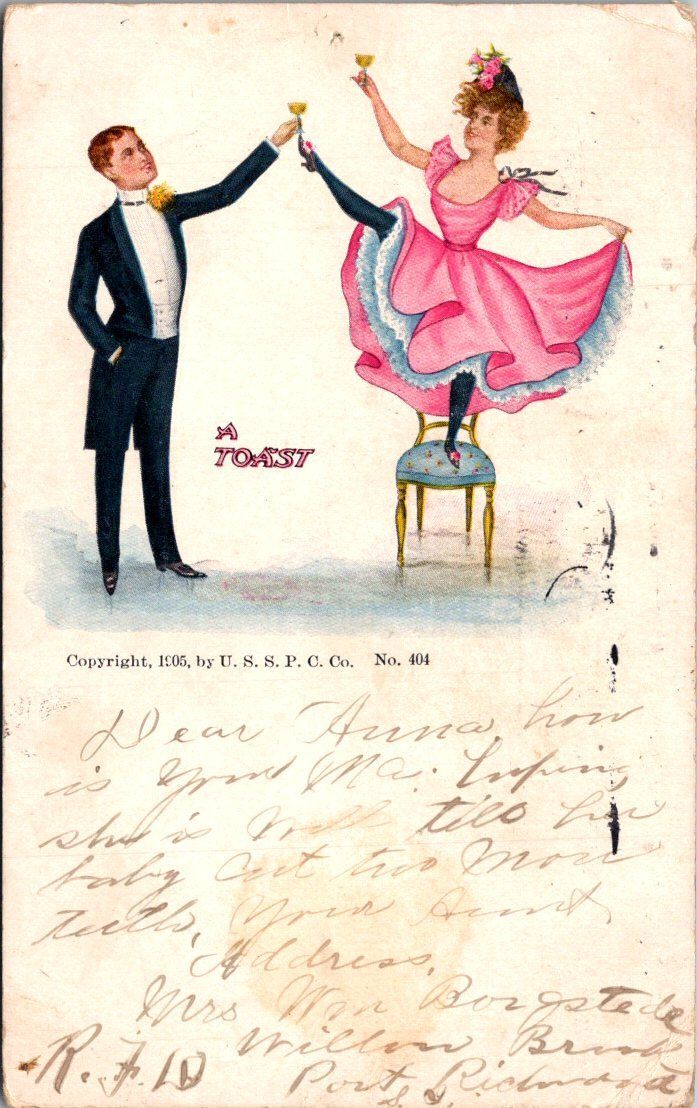 A
TOAST
Copyright, 1905, by U. S. S. P. C. Co. No. 404
Dear Anna, how
is your Ma. hoping
she is well tell her
baby cut two more
teeth, Your Aunt,
Address,
Mrs Wm Borgstede
Willow Brook
R. F. D Port Richmond
S. I.